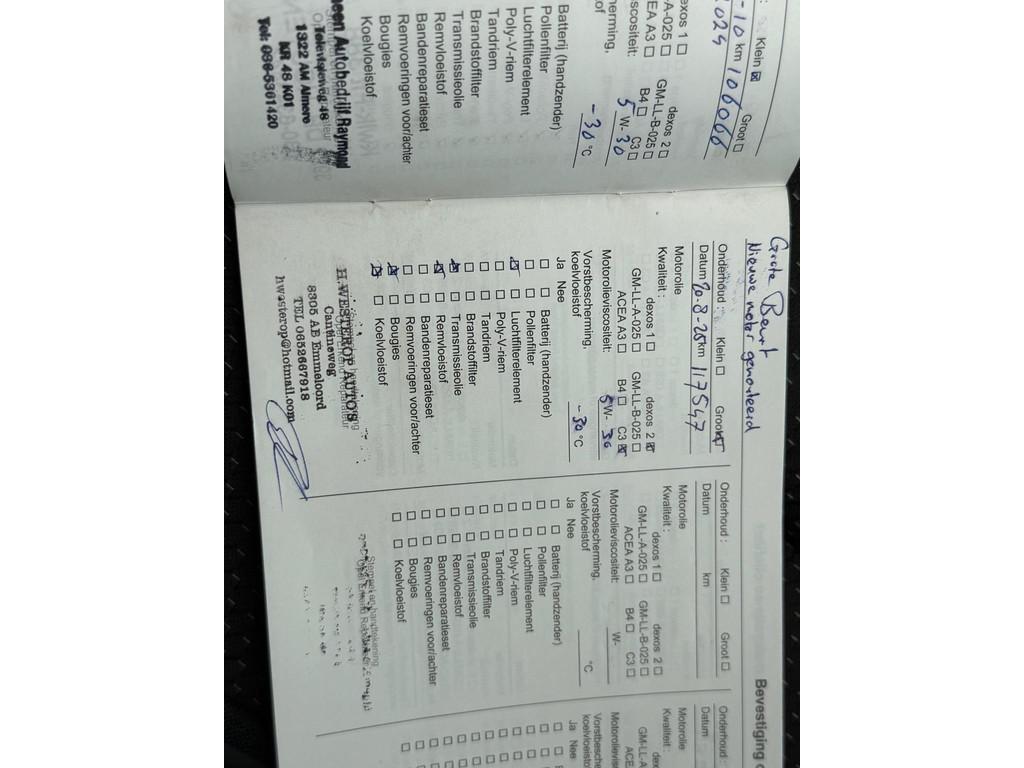 Klein ☒ Groot ☐
-10 2024 km 106066
dexos 1 ☐ dexos 2 ☐
A-025 ☐ GM-LL-B-025 ☐
ACEA A3 ☐ B4 ☐ C3 ☐
5 W- 30
-30 °C
Batterij (handzender)
Pollenfilter
Luchtfilterelement
Poly-V-riem
Tandriem
Brandstoffilter
Transmissieolie
Remvloeistof
Bandenreparatieset
Remvoeringen voor/achter
Bougies
Koelvloeistof
een Autobedrijf Raymond
Televisieweg 48
1322 AM Almere
KR 48 K01
Tel: 036-5361420
Grote Beurt
Nieuwe motor gemonteerd
Onderhoud : Klein ☐ Groot ☒
Datum 20-8-25 km 117547
Motorolie
Kwaliteit : dexos 1 ☐ dexos 2 ☒
GM-LL-A-025 ☐ GM-LL-B-025 ☐
ACEA A3 ☐ B4 ☐ C3 ☒
Motorolieviscositeit: 5 W- 30
Vorstbescherming,
koelvloeistof -30 °C
Ja Nee
☐ ☐ Batterij (handzender)
☐ ☐ Pollenfilter
☒ ☐ Luchtfilterelement
☐ ☐ Poly-V-riem
☐ ☐ Tandriem
☐ ☐ Brandstoffilter
☒ ☐ Transmissieolie
☒ ☐ Remvloeistof
☐ ☐ Bandenreparatieset
☐ ☐ Remvoeringen voor/achter
☒ ☐ Bougies
☒ ☐ Koelvloeistof
H. WESTEROP AUTO'S
Cantineweg
8305 AE Emmeloord
TEL 0652667918
hwesterop@hotmail.com
Bevestiging
Onderhoud : Klein ☐ Groot ☐
Datum km
Motorolie
Kwaliteit : dexos 1 ☐ dexos 2 ☐
GM-LL-A-025 ☐ GM-LL-B-025 ☐
ACEA A3 ☐ B4 ☐ C3 ☐
Motorolieviscositeit: W-
Vorstbescherming,
koelvloeistof °C
Ja Nee
☐ ☐ Batterij (handzender)
☐ ☐ Pollenfilter
☐ ☐ Luchtfilterelement
☐ ☐ Poly-V-riem
☐ ☐ Tandriem
☐ ☐ Brandstoffilter
☐ ☐ Transmissieolie
☐ ☐ Remvloeistof
☐ ☐ Bandenreparatieset
☐ ☐ Remvoeringen voor/achter
☐ ☐ Bougies
☐ ☐ Koelvloeistof
Stempel en handtekening
Onderhoud :
Datum
Motorolie
Kwaliteit :
GM-LL-A
ACE
Motorolieviscositeit
Vorstbesche
koelvloeisto
Ja Nee